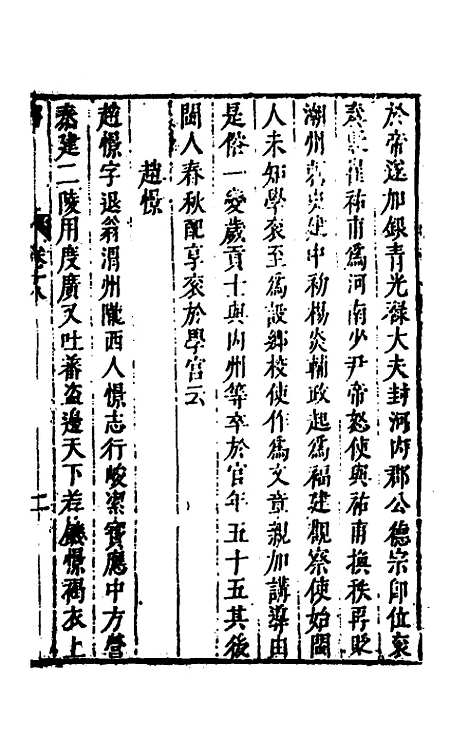 於帝遂加銀青光祿大夫封河內郡公德宗卽位袞
奏貶崔祐甫爲河南少尹帝怒使與祐甫換秩再貶
潮州刺史建中初楊炎輔政起爲福建觀察使始閩
人未知學袞至爲設鄉校使作爲文章親加講導由
是俗一變歲貢士與內州等卒於官年五十五其後
閩人春秋配享袞於學官云
趙憬
趙憬字退翁渭州隴西人憬志行峻潔寶應中方營
泰建二陵用度廣又吐蕃盜邊天下荐饑憬褐衣上
卷十八
二